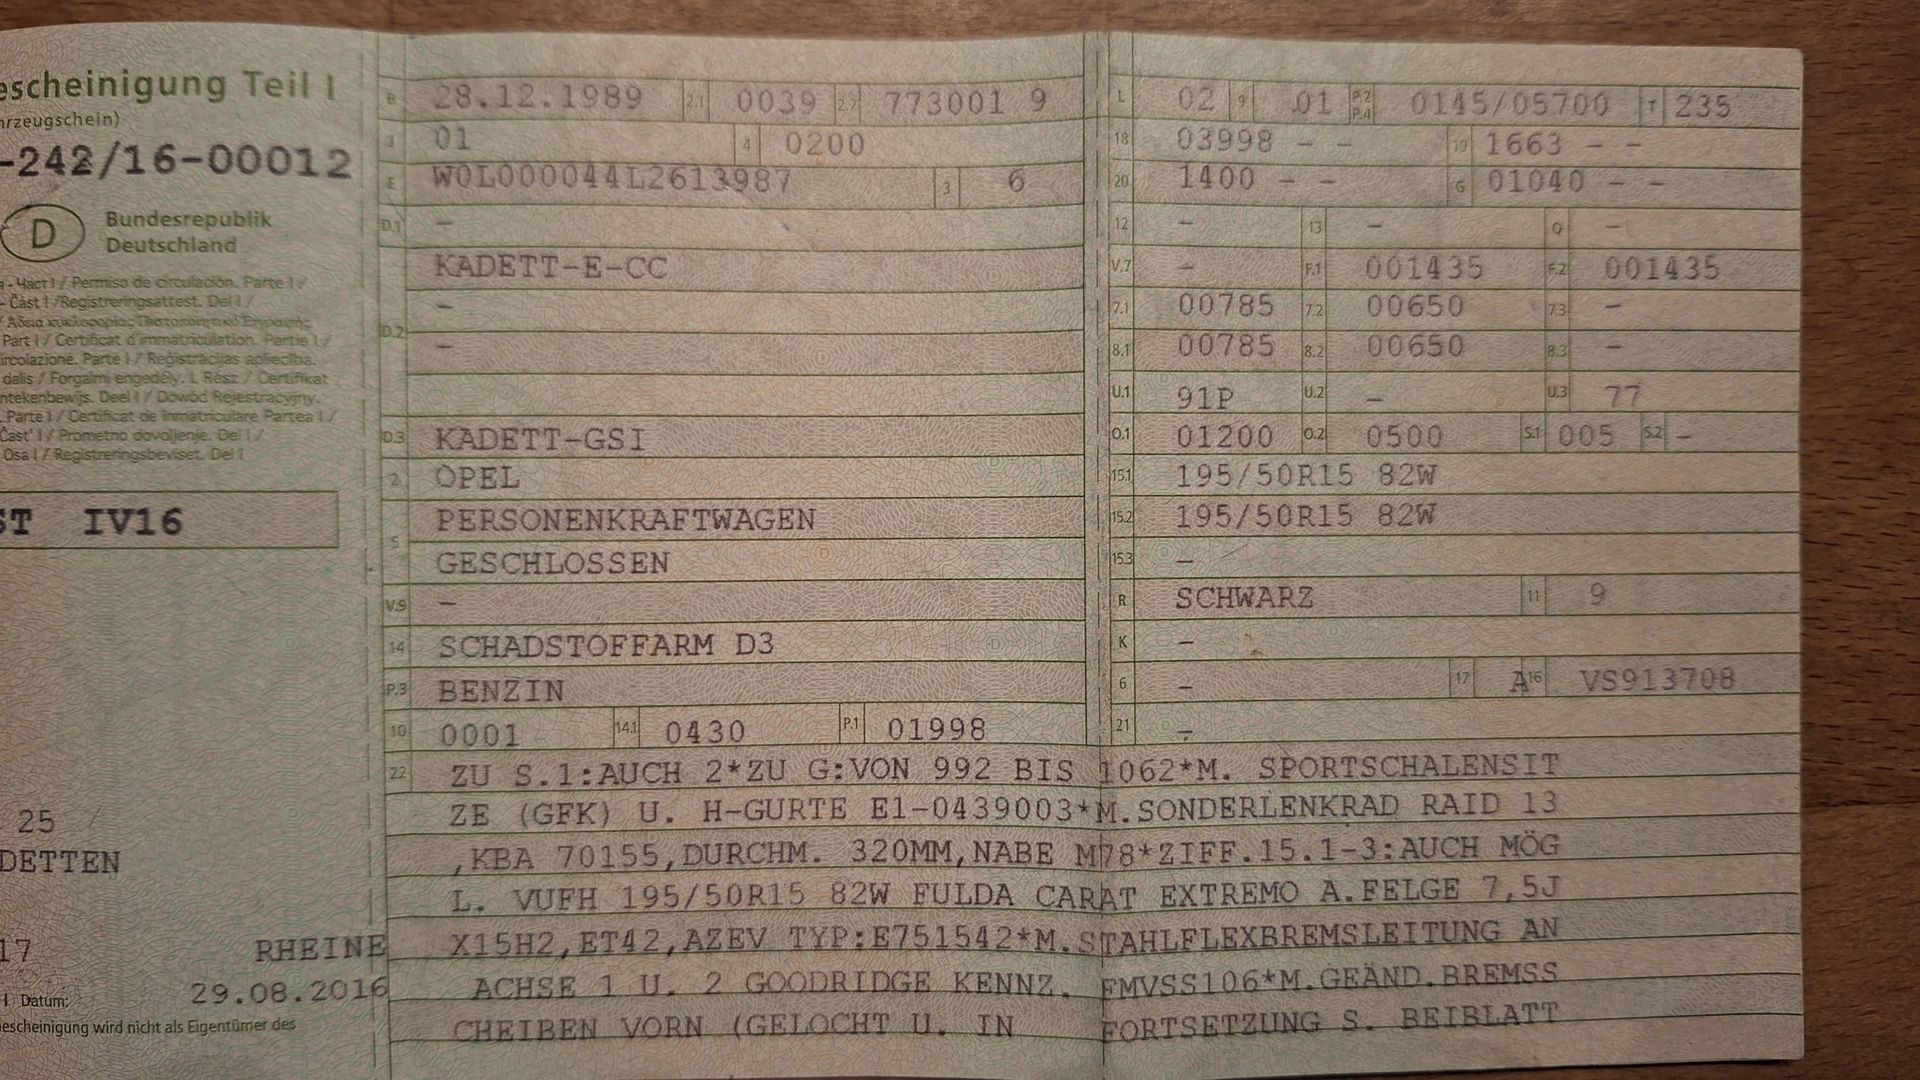 escheinigung Teil I
hrzeugschein)
-242/16-00012
D Bundesrepublik
Deutschland
- Част I / Permiso de circulación. Parte I /
- Část I /Registreringsattest. Del I /
/ Άδεια κυκλοφορίας Πιστοποιητικό Εγγραφής
Part I / Certificat d'immatriculation. Partie I /
ircolazione. Parte I / Reģistrācijas apliecība.
dalis / Forgalmi engedély. I. Rész / Ċertifikat
ntekenbewijs. Deel I / Dowód Rejestracyjny.
. Parte I / Certificat de înmatriculare Partea I /
Časť I / Prometno dovoljenje. Del I /
Osa I / Registreringsbeviset. Del I
ST IV16
25
DETTEN
17 RHEINE
29.08.2016
I Datum:
escheinigung wird nicht als Eigentümer des
B 28.12.1989 2.1 0039 2.2 773001 9
J 01 4 0200
E W0L000044L2613987 3 6
D.1 –
KADETT-E-CC
D.2 –
–
D.3 KADETT-GSI
2 OPEL
5 PERSONENKRAFTWAGEN
GESCHLOSSEN
V.9 –
14 SCHADSTOFFARM D3
P.3 BENZIN
10 0001 14.1 0430 P.1 01998
L 02 9 01 P.2 P.4 0145/05700 T 235
18 03998 – – 19 1663 – –
20 1400 – – G 01040 – –
12 – 13 – Q –
V.7 – F.1 001435 F.2 001435
7.1 00785 7.2 00650 7.3 –
8.1 00785 8.2 00650 8.3 –
U.1 91P U.2 – U.3 77
O.1 01200 O.2 0500 S.1 005 S.2 –
15.1 195/50R15 82W
15.2 195/50R15 82W
15.3 –
R SCHWARZ 11 9
K –
6 – 17 A 16 VS913708
21 –
22 ZU S.1:AUCH 2*ZU G:VON 992 BIS 1062*M. SPORTSCHALENSIT
ZE (GFK) U. H-GURTE E1-0439003*M.SONDERLENKRAD RAID 13
,KBA 70155,DURCHM. 320MM,NABE M78*ZIFF.15.1-3:AUCH MÖG
L. VUFH 195/50R15 82W FULDA CARAT EXTREMO A.FELGE 7,5J
X15H2,ET42,AZEV TYP:E751542*M.STAHLFLEXBREMSLEITUNG AN
ACHSE 1 U. 2 GOODRIDGE KENNZ. FMVSS106*M.GEÄND.BREMSS
CHEIBEN VORN (GELOCHT U. IN FORTSETZUNG S. BEIBLATT